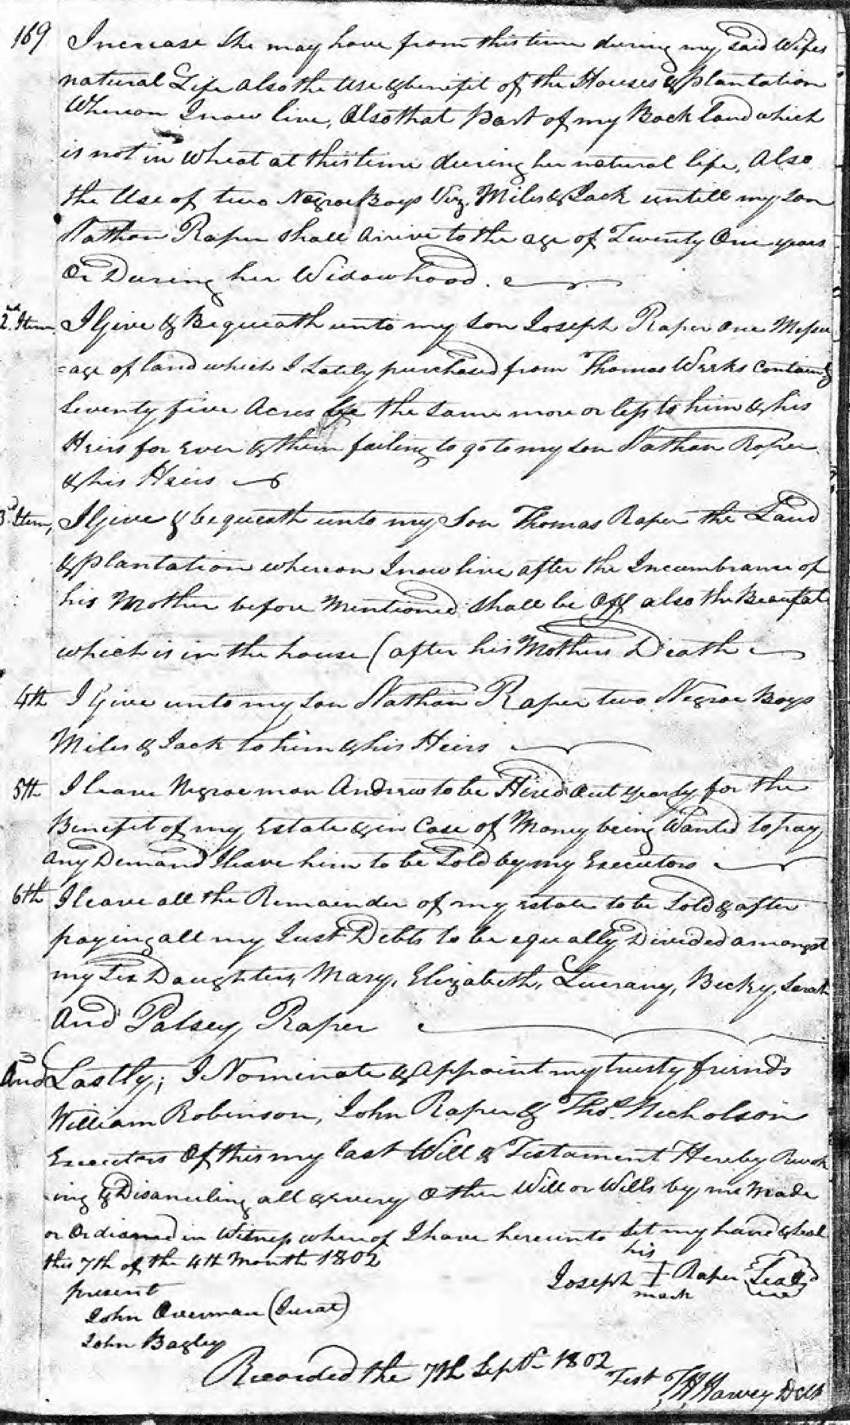 169 Increase She may have from this time during my said Wifes
natural Life also the Use & benefit of the Houses & plantation
Whereon I now live, Also that part of my Back land which
is not in Wheat at this time during her natural life, Also
the Use of two Negroe Boys Viz. Miles & Jack untill my son
Nathan Raper shall Arrive to the age of Twenty One years
Or During her Widowhood.
2nd. Item I Give & Bequeath unto my son Joseph Raper one Messu
=age of land which I Lately purchased from Thomas Weeks Containg
Seventy five Acres be the same more or less to him & his
Heirs for Ever & them failing to go to my son Nathan Raper
& his Heirs
3d. Item, I Give & bequeath unto my Son Thomas Raper the Land
& plantation whereon I now live after the Incumbrance of
his Mother before Mentioned shall be Off also the Beaufat
which is in the house (after his Mothers Death
4th I Give unto my son Nathan Raper two Negroe Boys
Miles & Jack to him & his Heirs
5th I leave Negroe man Andrew to be Hired Out yearly for the
Benefit of my Estate & in Case of Money being Wanted to pay
any Demand I leave him to be Sold by my Executors
6th I leave all the Remainder of my estate to be Sold & after
paying all my Just Debts to be equally Divided amongst
my Six Daughters, Mary, Elizabeth, Becky, Sarah
And Patsey Raper
And Lastly; I Nominate & Appoint my trusty friends
William Robinson, John Raper & Thos. Nicholson
Executors Of this my last Will & Testament Hereby Revok
ing & Disanuling all & every Other Will or Wills by me Made
or Ordained in Witness whereof I have hereunto set my hand & seal
this 7th of the 4th Month 1802
his
Joseph I Raper Seal
mark
present
John Overman (Jurat)
John Bagley
Recorded the 7th Septr. 1802
Test Harvey DClk